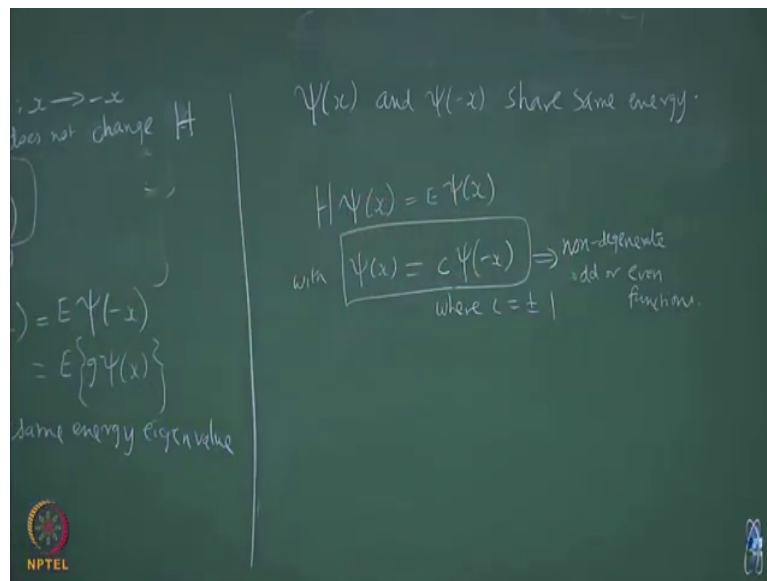 : x → -x
does not change H
) = E ψ(-x)
= E{gψ(x)}
same energy eigenvalue
ψ(x) and ψ(-x) share same energy.
Hψ(x) = E ψ(x)
with ψ(x) = c ψ(-x) ⇒ non-degenerate
odd or even
functions.
where c = ± 1
NPTEL